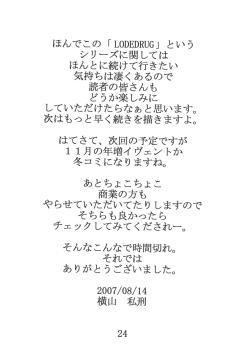 ほんでこの「LODEDRUG」という
シリーズに関しては
ほんとに続けて行きたい
気持ちは凄くあるので
読者の皆さんも
どうか楽しみに
していただけたらなぁと思います。
次はもっと早く続きを描きますよ。
はてさて、次回の予定ですが
11月の年増イヴェントか
冬コミになりますね。
あとちょこちょこ
商業の方も
やらせていただいてたりしますので
そちらも良かったら
チェックしてみてくだされー。
そんなこんなで時間切れ。
それでは
ありがとうございました。
2007/08/14
横山 私刑
24